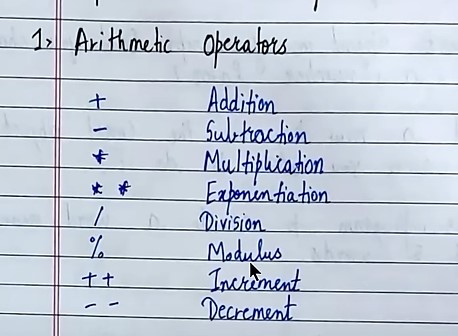 1, Arithmetic Operators
+ Addition
- Subtraction
* Multiplication
* * Exponentiation
/ Division
% Modulus
+ + Increment
- - Decrement